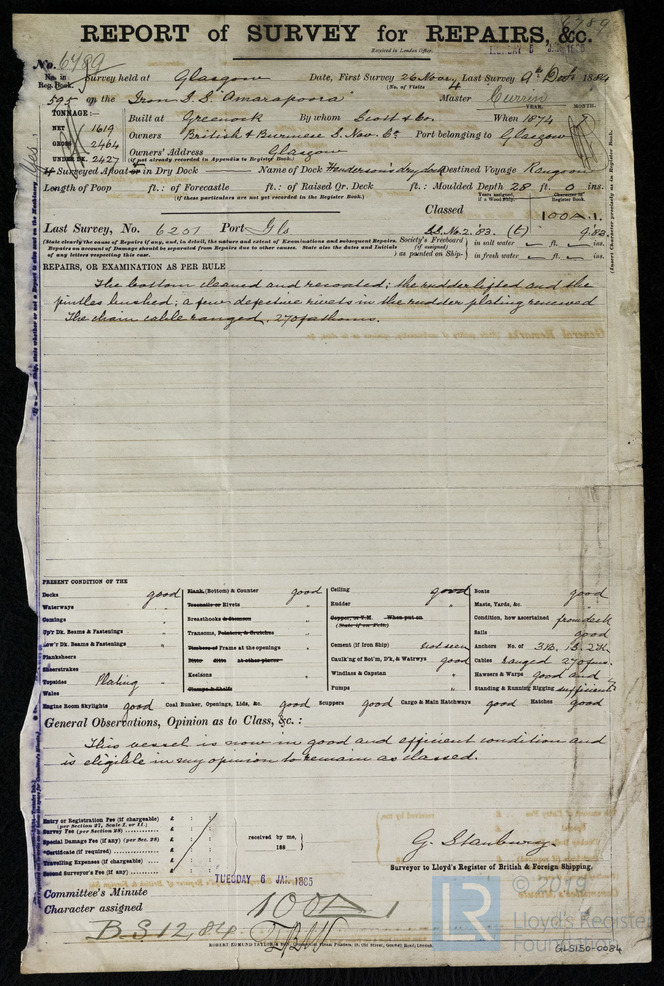 6789
REPORT of SURVEY for REPAIRS, &c.
Received in London Office
No. 6789
No. in Reg. Book. Survey held at Glasgow Date, First Survey 26 Nov, Last Survey 9th Dec 1884
(No. of Visits 4
595 on the Iron S.S. "Amarapoora" Master Currie
TONNAGE:—
NET 1619
GROSS 2464
UNDER DK. 2427
YEAR. MONTH.
Built at Greenock By whom Scott & Co. When 1874 7
Owners British & Burmese S. Nav. Co Port belonging to Glasgow
Owners' Address Glasgow
(if not already recorded in Appendix to Register Book.)
If Surveyed Afloat or in Dry Dock Name of Dock Henderson's dry dock Destined Voyage Rangoon
Length of Poop ft.: of Forecastle ft.: of Raised Qr. Deck ft.: Moulded Depth 28 ft. 0 ins.
(if these particulars are not yet recorded in the Register Book.)
Years assigned, if a Wood Ship. Character in Register Book.
Classed 100A.1.
Last Survey, No. 6251 Port Gls S.S. No. 2. '83. (t) 9.83
(State clearly the cause of Repairs if any, and, in detail, the nature and extent of Examinations and subsequent Repairs.
Repairs on account of Damage should be separated from Repairs due to other causes. State also the dates and Initials
of any letters respecting this case.
Society's Freeboard (if assigned) as painted on Ship- in salt water ft. ins.
in fresh water ft. ins.
REPAIRS, OR EXAMINATION AS PER RULE
The bottom cleaned and recoated; the rudder lifted and the
pintles bushed; a few defective rivets in the rudder plating renewed
The chain cable ranged. 270 fathoms.
PRESENT CONDITION OF THE
Decks good
Waterways "
Comings "
Up'r Dk. Beams & Fastenings "
Low'r Dk. Beams & Fastenings "
Planksheers
Sheerstrakes
Topsides Plating
Wales
Plank (Bottom) & Counter good
Treenails or Rivets "
Breasthooks & Stemson "
Transoms, Pointers, & Crutches "
Timbers of Frame at the openings "
Ditto ditto at other places
Keelsons "
Clamps & Shelfs
Ceiling good
Rudder "
Copper, or Y.M. When put on
(State if on Felt)
Cement (if Iron Ship) not seen
Caulk'ng of Bot'm, D'k, & Watrwys good
Windlass & Capstan "
Pumps "
Boats good
Masts, Yards, &c. "
Condition, how ascertained from deck
Sails good
Anchors No. of 3B, 1S, 2K
Cables ranged 270 fms.
Hawsers & Warps good and
Standing & Running Rigging sufficient
Engine Room Skylights good Coal Bunker, Openings, Lids, &c. good Scuppers good Cargo & Main Hatchways good Hatches good
General Observations, Opinion as to Class, &c.:
This vessel is now in good and efficient condition and
is eligible in my opinion to remain as classed.
Entry or Registration Fee (if chargeable) £ : :
(per Section 27, Scale I. or II.)
Survey Fee (per Section 28) £ : :
Special Damage Fee (if any) (per Sec. 28) £ : :
*Certificate (if required) £ : :
Travelling Expenses (if chargeable) £ : :
Second Surveyor's Fee (if any) £ : :
received by me,
188
G. Stanbury
Surveyor to Lloyd's Register of British & Foreign Shipping.
TUESDAY 6 JAN. 1885
Committee's Minute
Character assigned 100A1
B.S 12,84
LR
© 2019
Lloyd's Register
Foundation
GLS150-0084